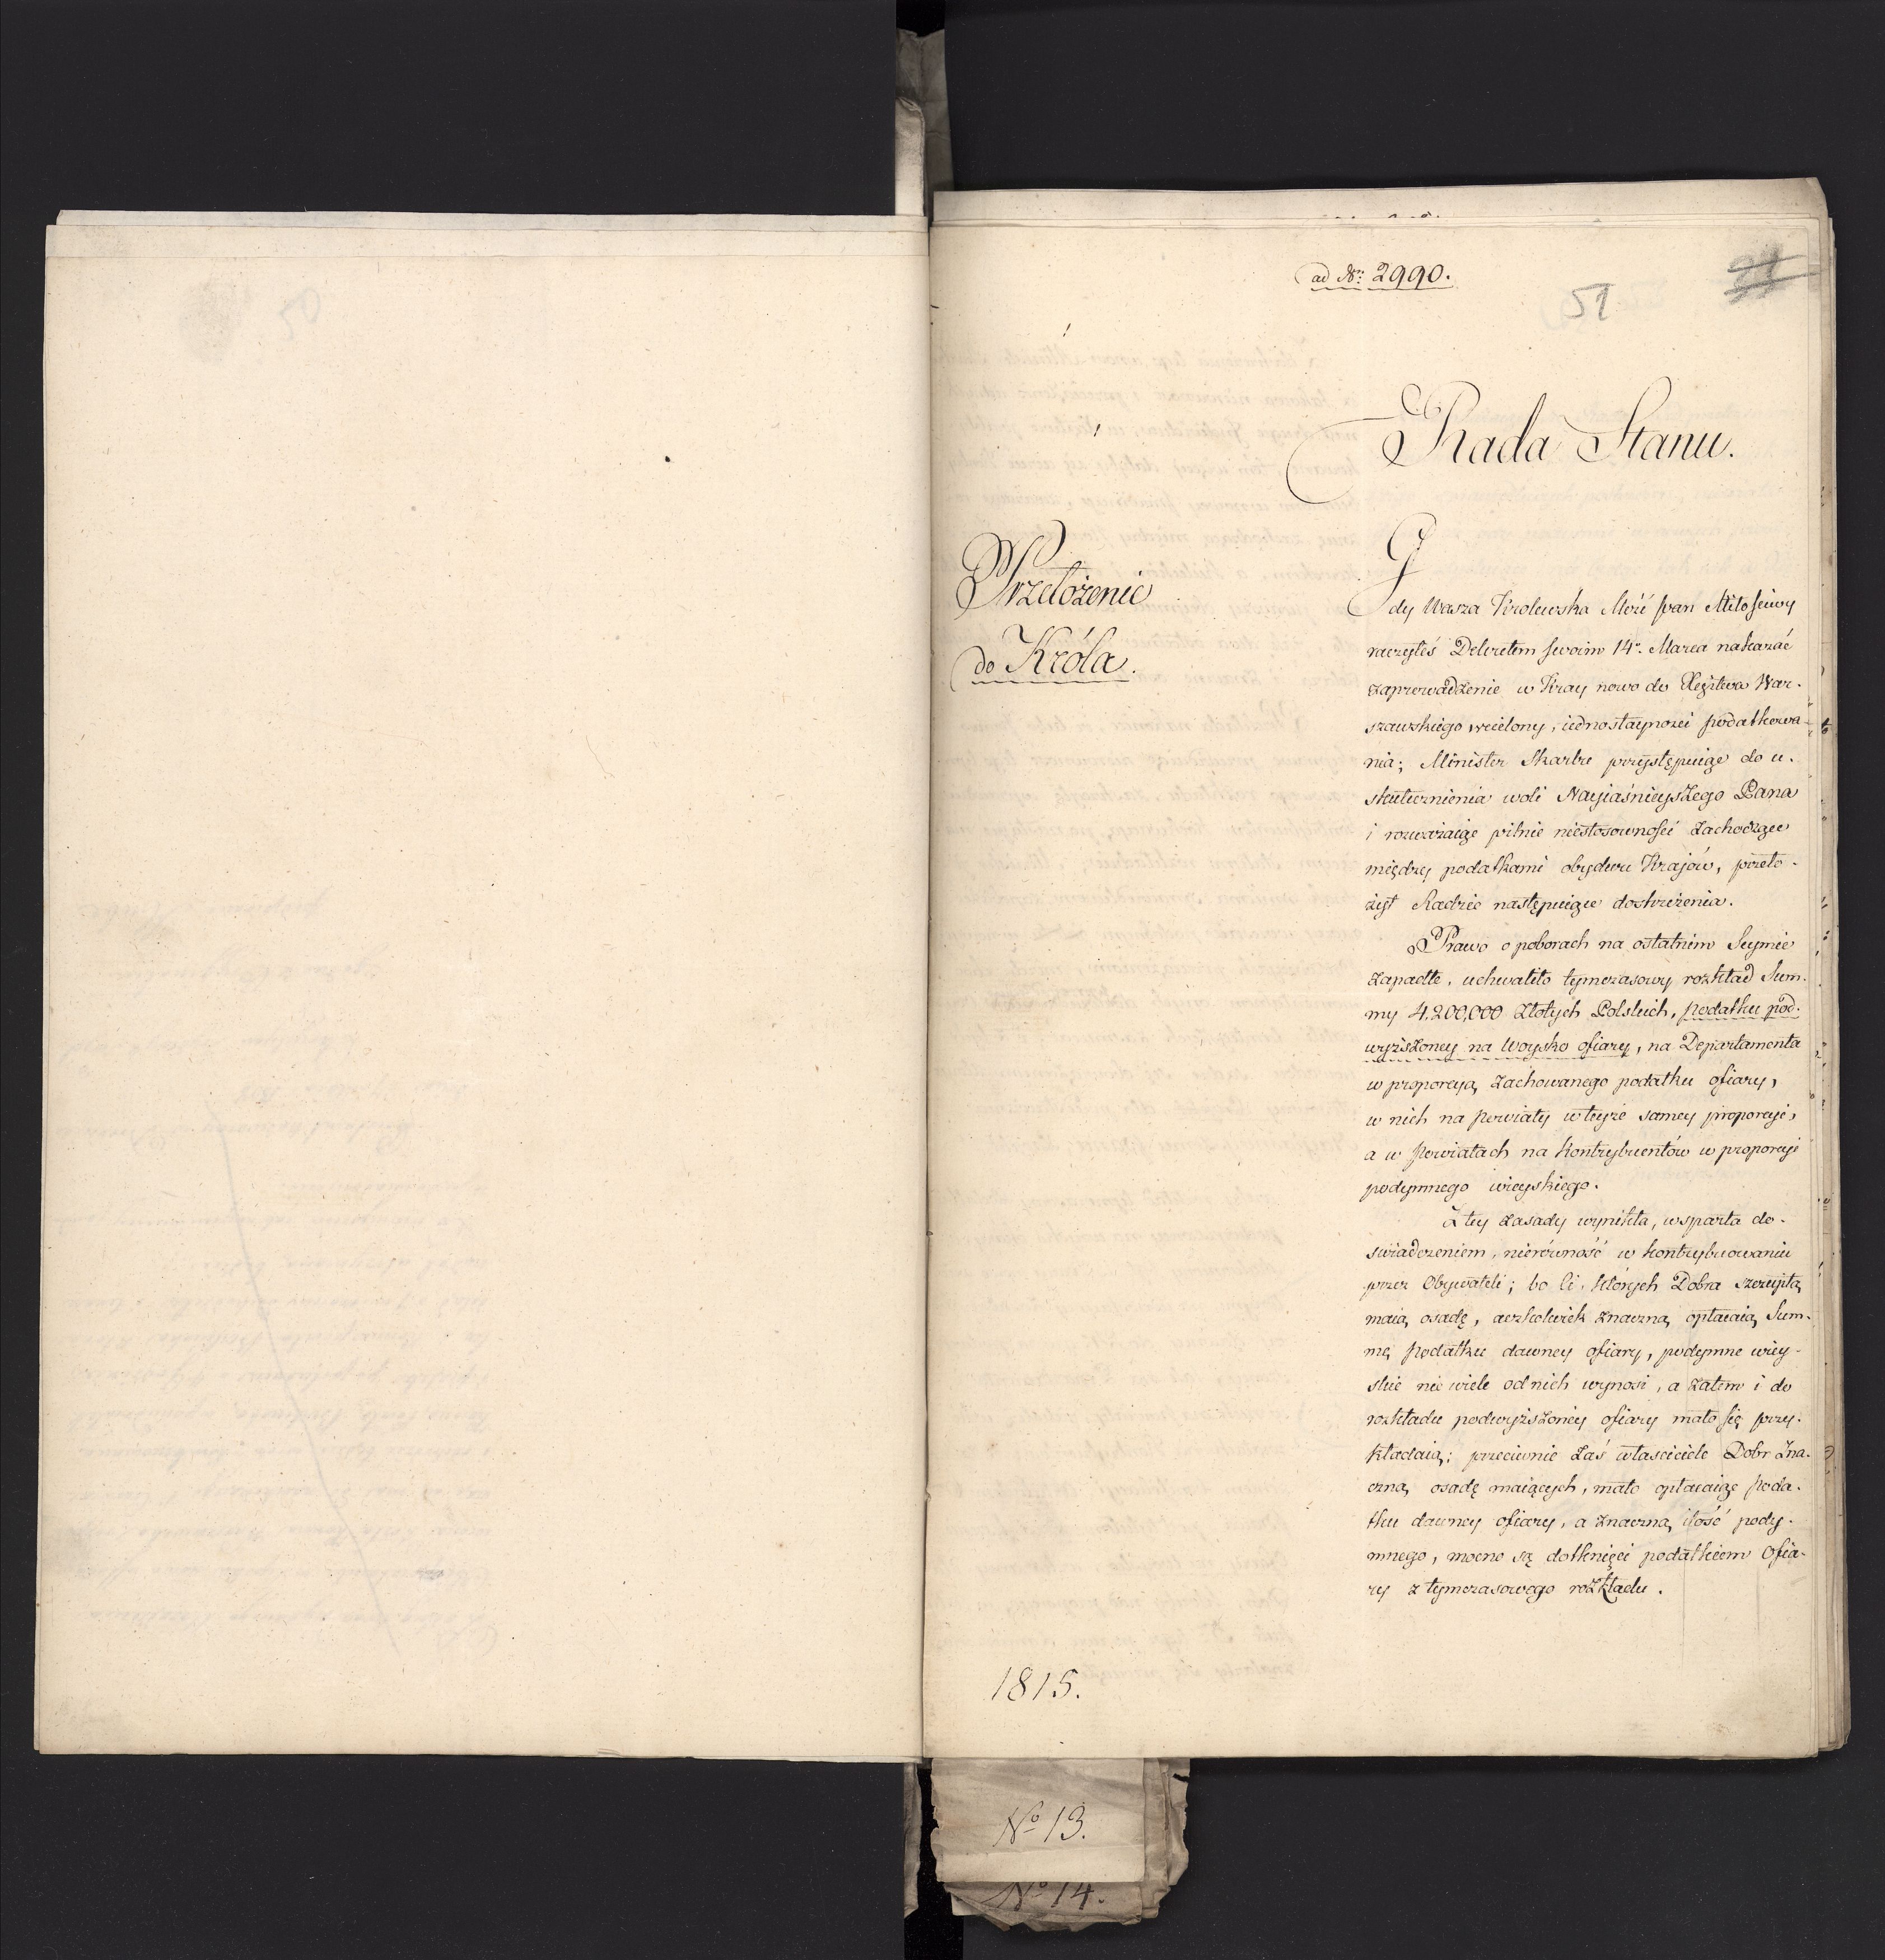 ad Nr: 2990.
51
Rada Stanu.
Przełożenie
do Króla.
Gdy Wasza Krolewska Mość Pan Miłościwy
raczyłeś Dekretem swoim 14o. Marca nakazać
zaprowadzenie w Kray nowo do Xięstwa War-
szawskiego wcielony, iednostayności podatkowa-
nia; Minister Skarbu przystępuiąc do u-
skutecznienia woli Nayiaśnieyszego Pana
i rozważaiąc pilnie niestosowności zachodzące
między podatkami obydwu Krajów, przeło-
żył Radzie następuiące dostrzeżenia.
Prawo o poborach na ostatnim Seymie
zapadłe, uchwaliło tymczasowy rozkład Sum-
my 4,200,000 Złotych Polskich, podatku pod-
wyższoney na Woysko ofiary, na Departamenta
w proporcyą zachowanego podatku ofiary,
w nich na Powiaty w teyże samey proporcyi,
a w Powiatach na Kontrybuentów w proporcyi
podymnego wieyskiego.
Z tey zasady wynikła, wsparta do-
świadczeniem, nierówność w kontrybuowaniu
przez Obywateli; bo Ci, których Dobra szczupłą
maią osadę, aczkolwiek znaczną opłacaią Sum-
mę Podatku dawney ofiary, podymne wiey-
skie nie wiele od nich wynosi, a zatem i do
rozkładu podwyższoney ofiary mało się przy-
kładaią; przeciwnie zaś właściciele Dobr zna-
czną osadę maiących, mało opłacaiąc Poda-
tku dawney ofiary, a znaczną ilość pody-
mnego, mocno są dotknięci podatkiem Ofia-
ry z tymczasowego rozkładu.
1815.
No 13.
No 14.